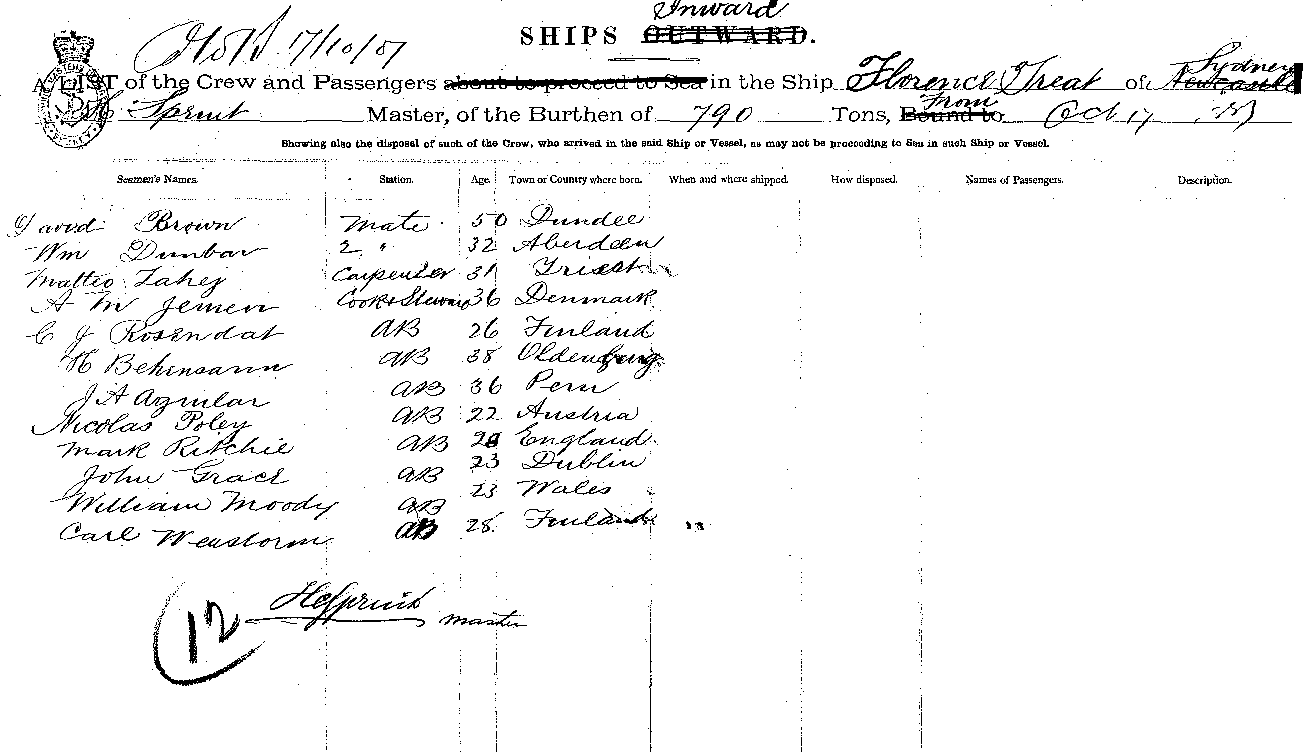 Inward
SHIPS OUTWARD.
17/10/87
Sydney
A LIST of the Crew and Passengers about to proceed to Sea in the Ship Florence Treat of Newcastle
From
Spruit Master, of the Burthen of 790 Tons, Bound to Oct 17
Showing also the disposal of such of the Crew, who arrived in the said Ship or Vessel, as may not be proceeding to Sea in such Ship or Vessel.
Seamen's Names. Station. Age. Town or Country where born. When and where shipped. How disposed. Names of Passengers. Description.
David Brown Mate 50 Dundee
Wm Dunbar 2 " 32 Aberdeen
Matteo Carpenter 31 Triest
A M Jemen Cook & Steward 36 Denmark
C J Rosendat AB 26 Finland
H Behensann AB 38 Oldenburg
J A Aguilar AB 36 Peru
Nicolas Poley AB 22 Austria
Mark Ritchie AB England
John Grace AB 23 Dublin
William Moody AB 23 Wales
Carl Wenstorm AB 28 Finland
12 master